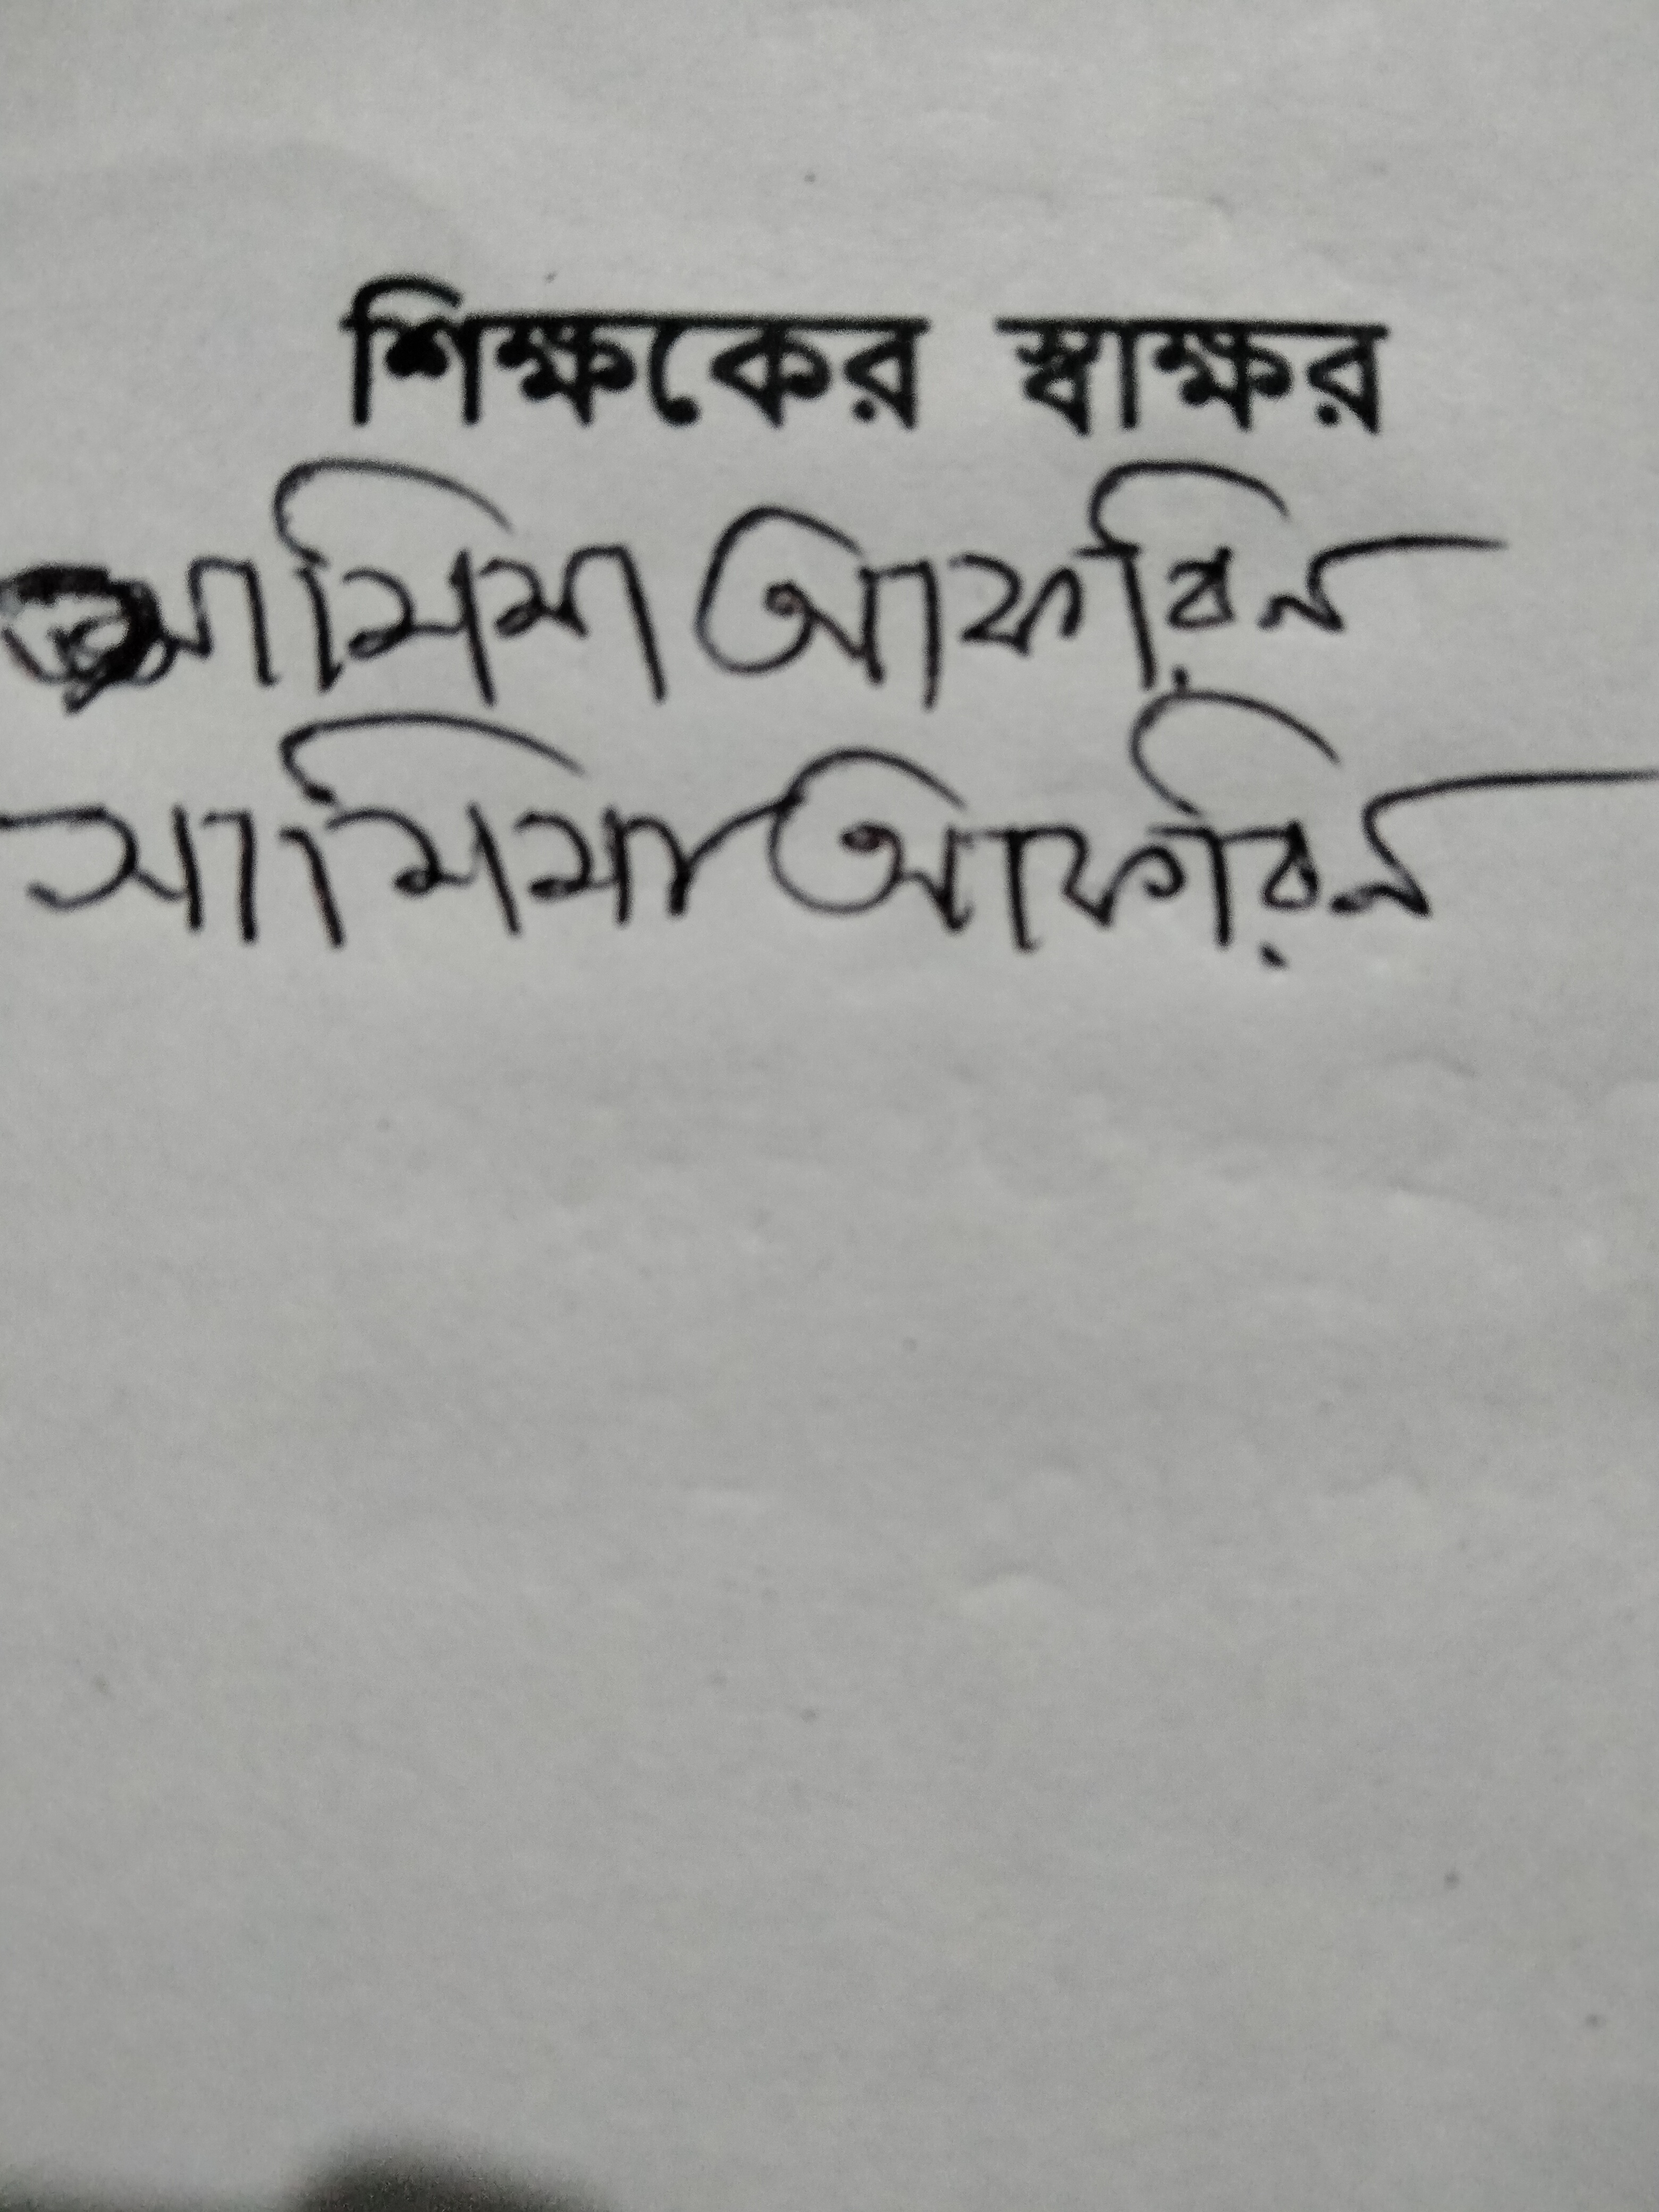 শিক্ষকের স্বাক্ষর
সামিমা আফরিন
সামিমা আফরিন